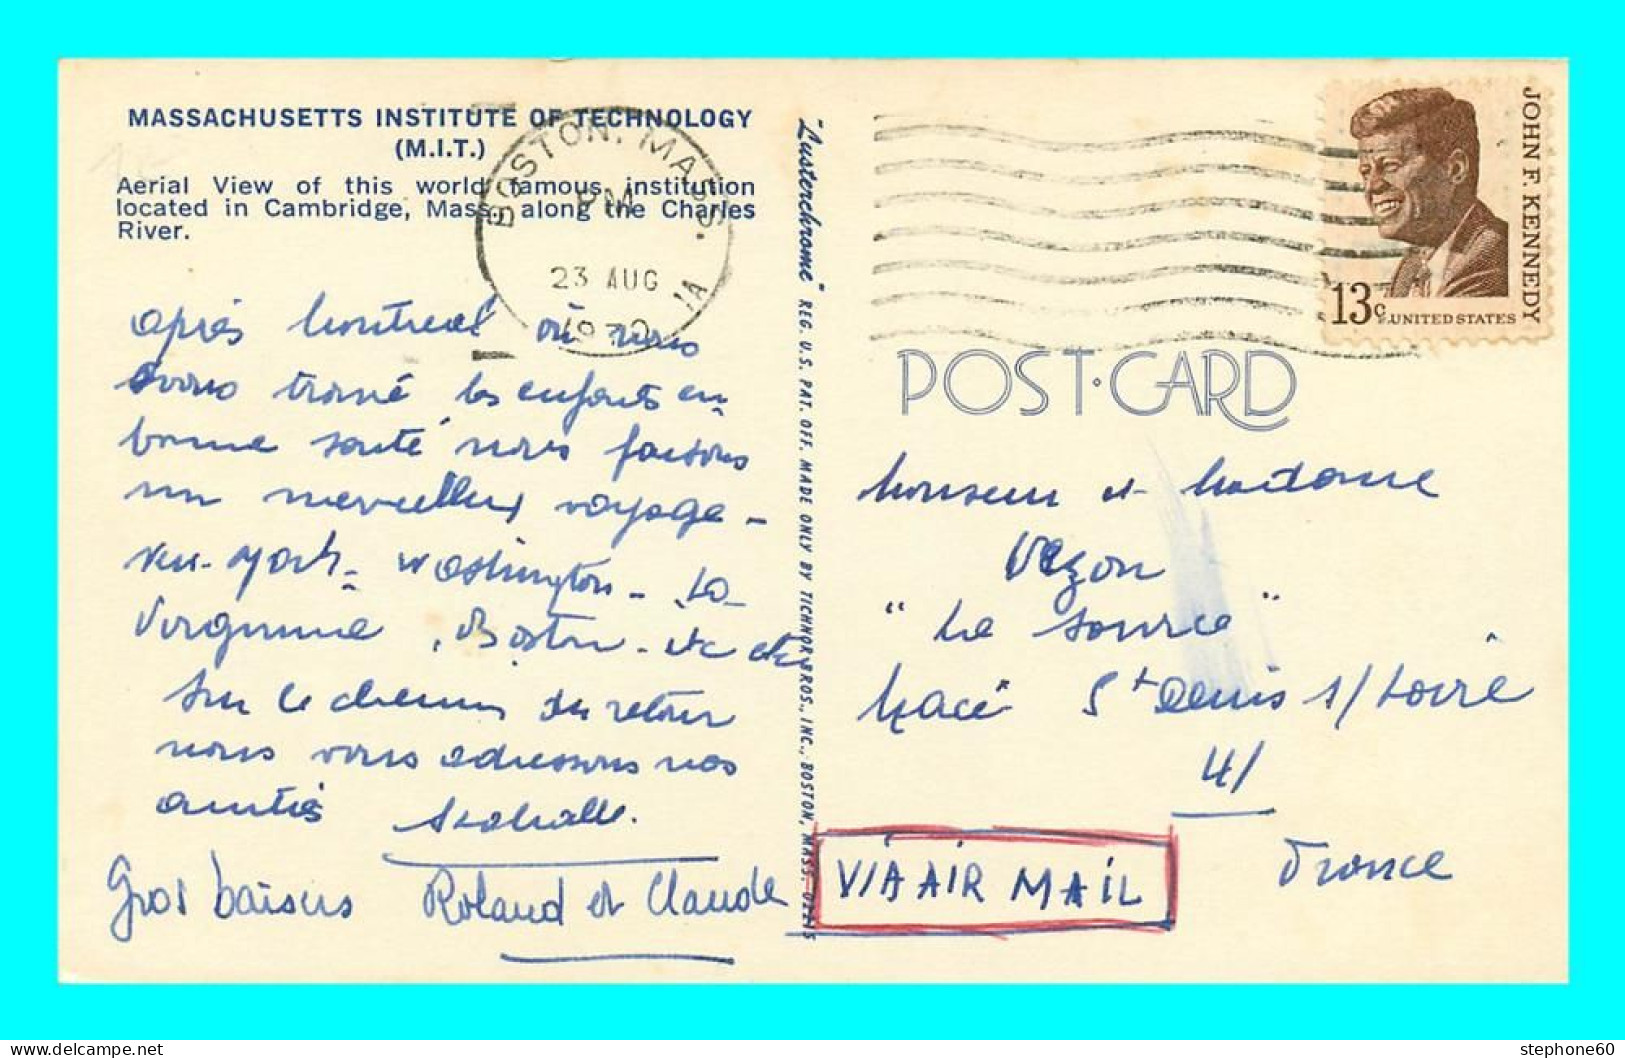 MASSACHUSETTS INSTITUTE OF TECHNOLOGY
(M.I.T.)
Aerial View of this world famous institution
located in Cambridge, Mass., along the Charles
River.
BOSTON, MASS.
PM
23 AUG
1970
1A
après Montreal où nous
avons trouvé les enfants en
bonne santé nous faisons
un merveilleux voyage -
New-York - Washington - La
Virginie, Boston - etc etc
sur le chemin du retour
nous vous adressons nos
amitiés
Gros baisers Roland et Claude
"Lusterchrome" REG. U.S. PAT. OFF. MADE ONLY BY TICHNOR BROS., INC., BOSTON, MASS. 02215
JOHN F. KENNEDY
13c UNITED STATES
POST·CARD
Monsieur et Madame
Vezon
"La Source"
Macé St Denis s/Loire
41
France
VIA AIR MAIL
stephone60